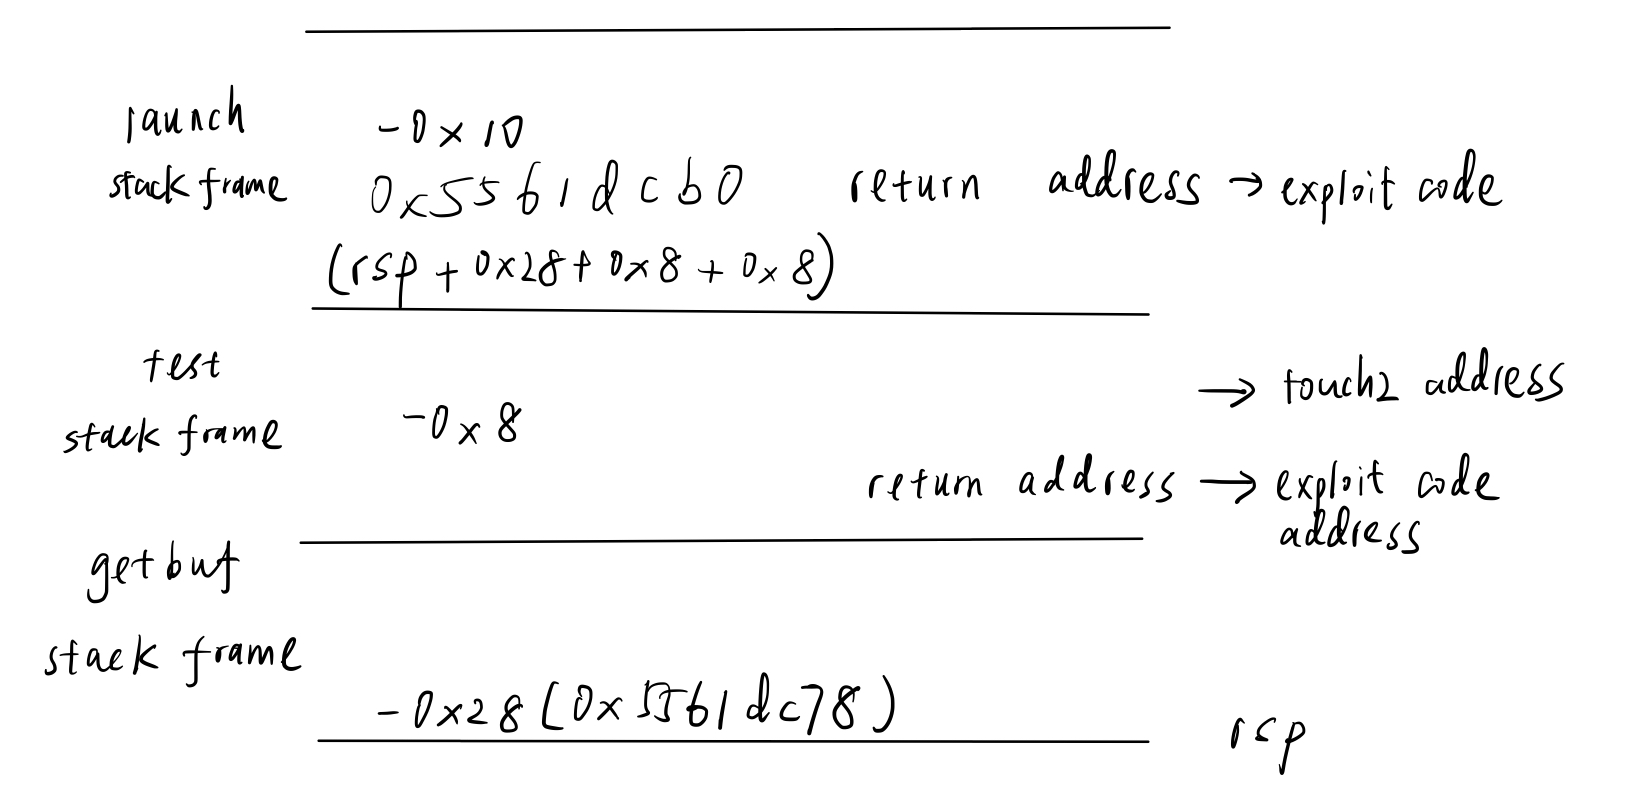 launch
-0x10
stack frame
0x5561dcb0
return address → exploit code
(rsp + 0x28 + 0x8 + 0x8)
test
→ touch2 address
stack frame
-0x8
return address → exploit code
address
getbuf
stack frame
-0x28 (0x5561dc78)
rsp